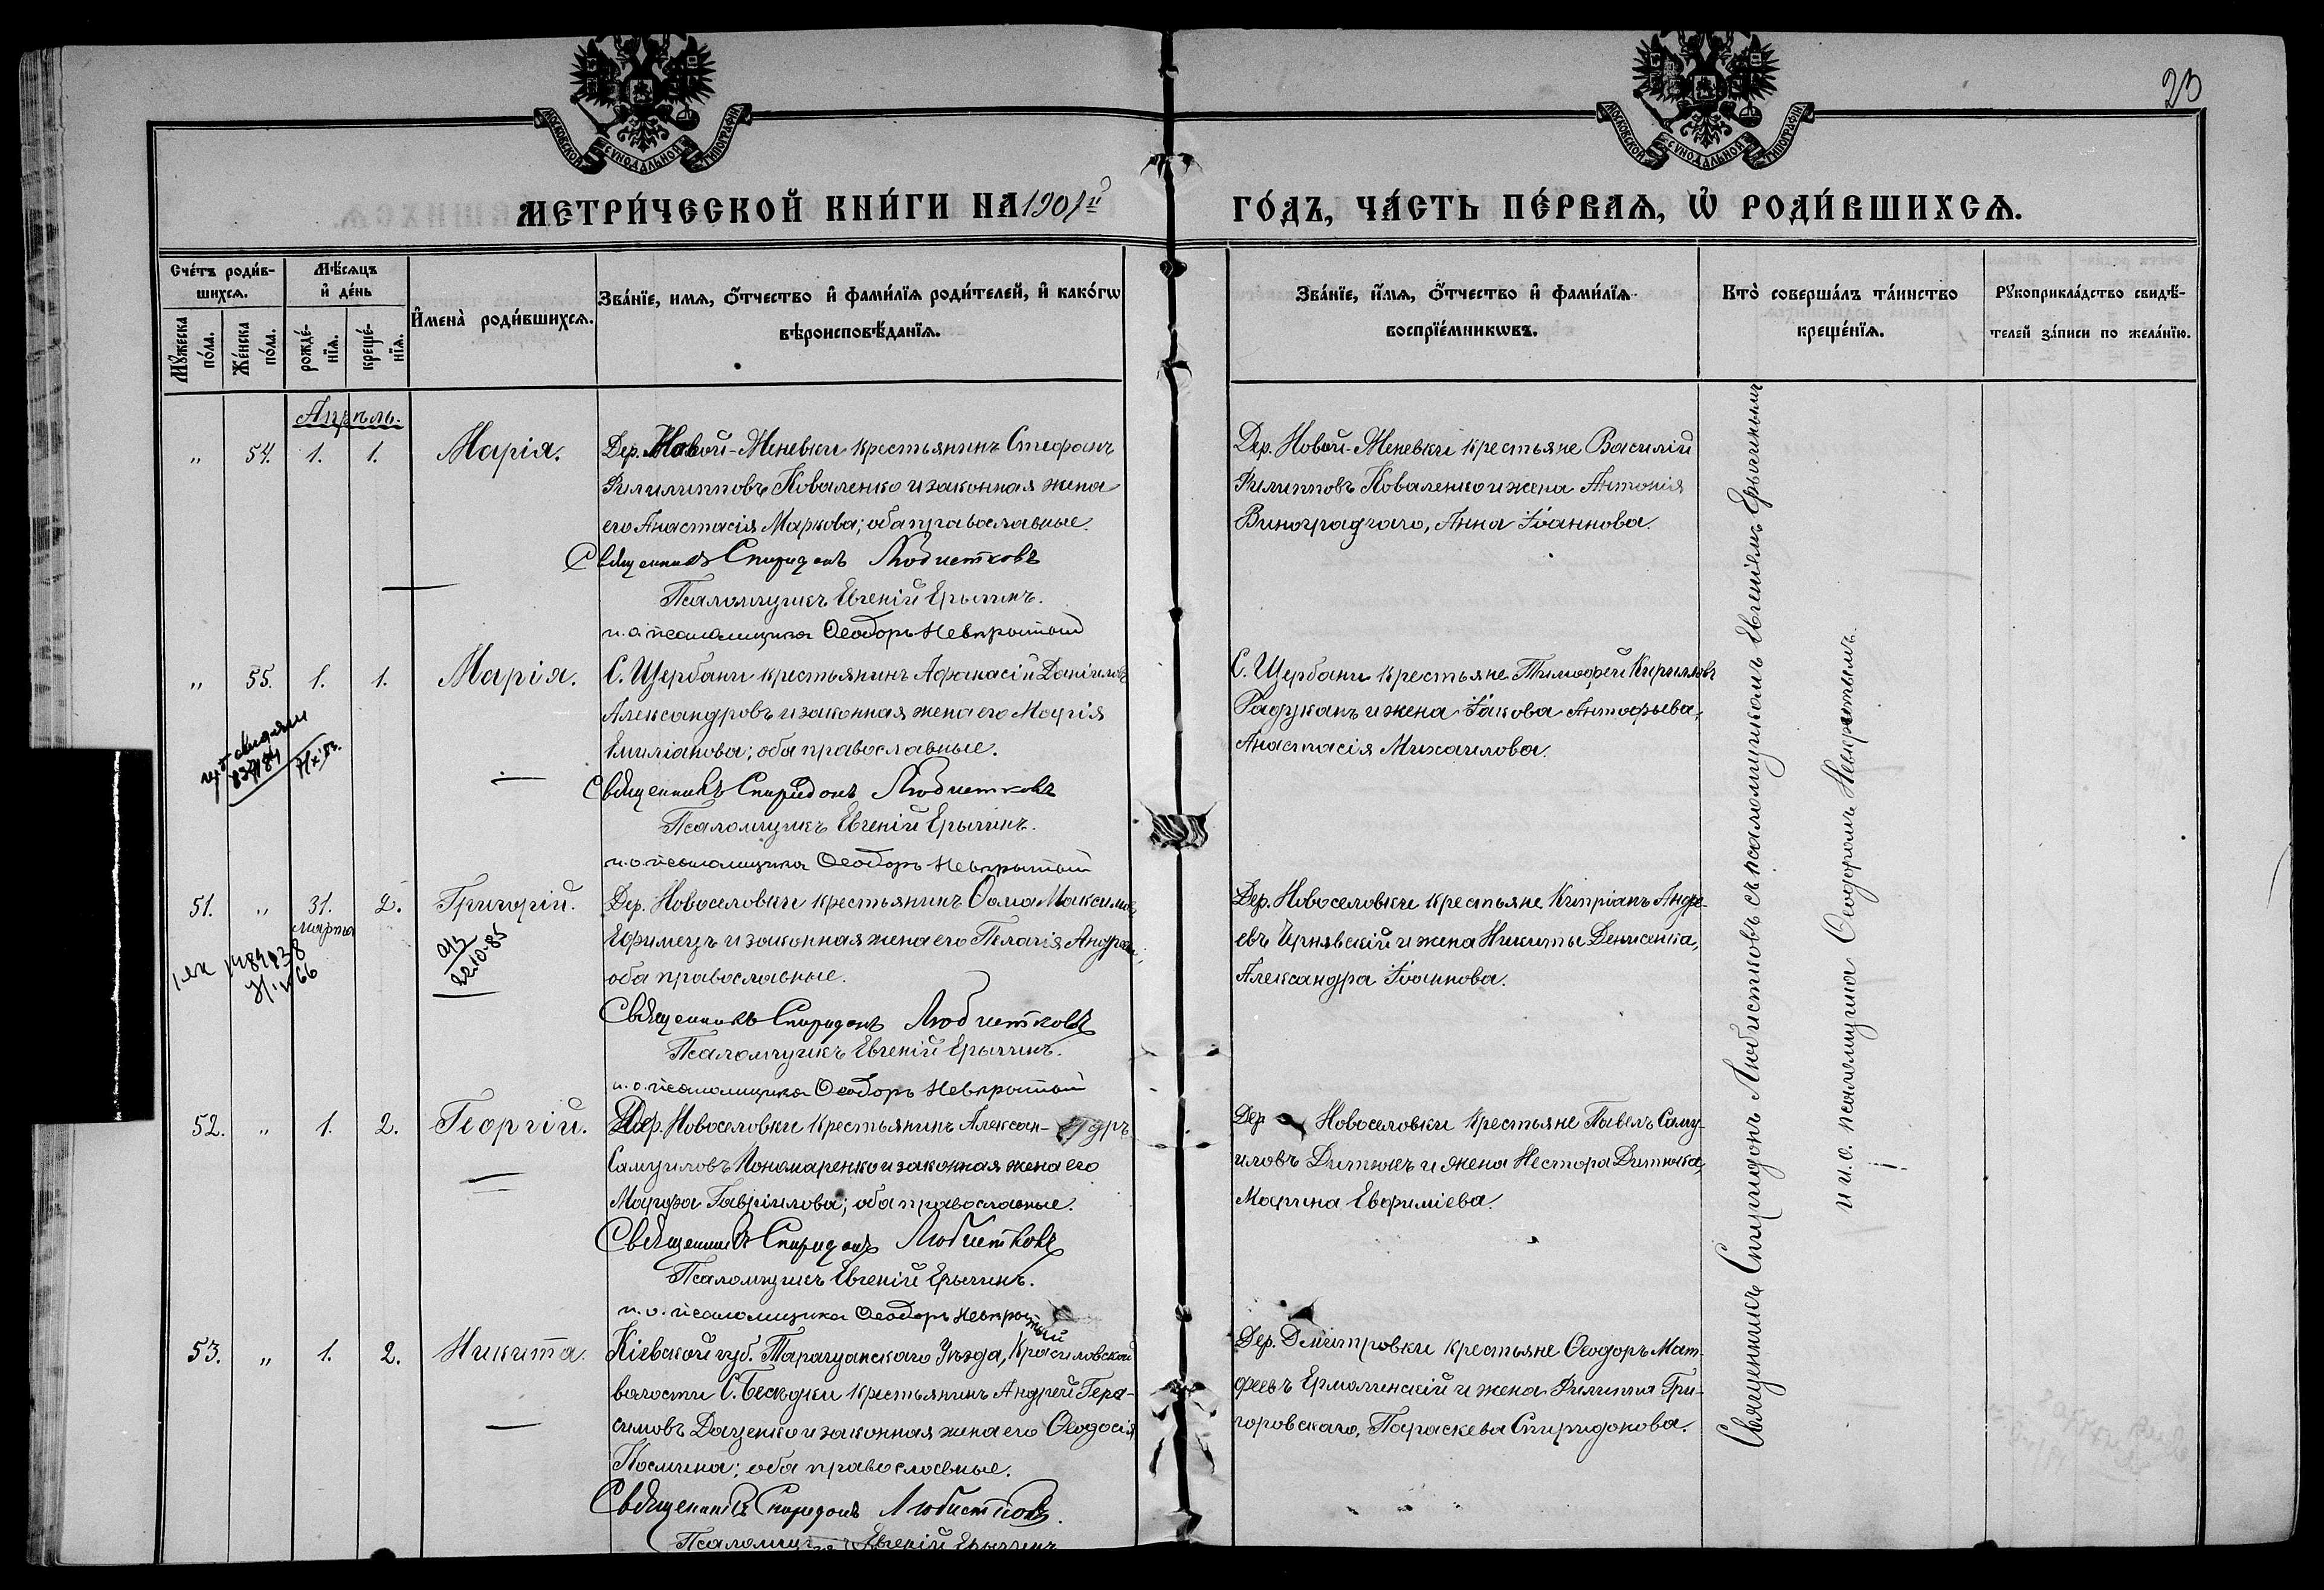 23
МОСКОВСКОЙ СѴНОДАЛЬНОЙ ТИПОГРАФІИ
МОСКОВСКОЙ СѴНОДАЛЬНОЙ ТИПОГРАФІИ
МЕТРИ́ЧЕСКОЙ КНИ́ГИ НА 1901й
ГО́ДЪ, ЧА́СТЬ ПЕ́РВАѦ, Ѡ҆ РОДИ́ВШИХСѦ.
Сче́тъ роди́в-
шихсѧ.
Мꙋ́жеска по́ла.
Же́нска по́ла.
Мѣ́сѧцъ
и҆ де́нь
рожде́-
нїѧ.
креще́-
нїѧ.
И҆мена̀ роди́вшихсѧ.
Зва́нїе, имѧ, ѻ҆́тчество и҆ фами́лїѧ роди́телей, и҆ како́гѡ
вѣроисповѣ́данїѧ.
Зва́нїе, и҆́мѧ, ѻ҆́тчество и҆ фами́лїѧ
воспрїе́мникѡвъ.
Кто̀ соверша́лъ та́инство
креще́нїѧ.
Рꙋкоприкла́дство свидѣ́-
телей за́писи по жела́нїю.
Апрѣль.
„ 54. 1. 1. Марія.
Дер. Новой-Меневки крестьянинъ Стефанъ
Филипповъ Коваленко и законная жена
его Анастасія Маркова; оба православные.
Священникъ Спиридонъ Любистковъ
Псаломщикъ Евгеній Ерыгинъ.
и. о. псаломщика Ѳеодоръ Невкрытый
Дер. Новой-Меневки крестьяне Василій
Филипповъ Коваленко и жена Антонія
Виноградчаго, Анна Іоаннова.
„ 55. 1. 1. Марія.
С. Щербани крестьянинъ Афанасій Даніиловъ
Александровъ и законная жена его Марія
Емиліанова; оба православные.
Священникъ Спиридонъ Любистковъ
Псаломщикъ Евгеній Ерыгинъ.
и. о. псаломщика Ѳеодоръ Невкрытый
С. Щербани крестьяне Тимофей Кирилловъ
Радуканъ и жена Іакова Антофьева,
Анастасія Михаилова.
51. „ 31. марта 2. Григорій.
22.10.85
Дер. Новоселовки крестьянинъ Ѳома Максимовъ
Ефимецъ и законная жена его Пелагія
оба православные.
Священникъ Спиридонъ Любистковъ
Псаломщикъ Евгеній Ерыгинъ.
и. о. псаломщика Ѳеодоръ Невкрытый
Дер. Новоселовки крестьяне Кипріанъ Андре-
евъ Чернявскій и жена Никиты Денисенка,
Александра Іоаннова.
52. „ 1. 2. Георгій.
Дер. Новоселовки крестьянинъ Алексан-дръ
Самуиловъ Пономаренко и законная жена его
Марфа Гавріилова; оба православные.
Священникъ Спиридонъ Любистковъ
Псаломщикъ Евгеній Ерыгинъ.
и. о. псаломщика Ѳеодоръ Невкрытый
Дер. Новоселовки крестьяне Павелъ Саму-
иловъ Дитюкъ и жена Нестора Дитюка,
Марина Евфиміева.
53. „ 1. 2. Никита.
Кіевской губ. Таращанскаго Уѣзда, Красиловской
волости С. Бесѣдки крестьянинъ Андрей Гера-
симовъ Даценко и законная жена его Ѳеодосія
Косьмина; оба православные.
Священникъ Спиридонъ Любистковъ.
Псаломщикъ Евгеній Ерыгинъ
Дер. Дмитровки крестьяне Ѳеодоръ Мат-
феевъ Ермолинскій и жена Филиппа Гри-
горовскаго, Параскева Спиридонова.
Священникъ Спиридонъ Любистковъ съ псаломщикомъ Евгеніемъ Ерыгинымъ
и и. о. псаломщика Ѳеодоромъ Невкрытымъ.